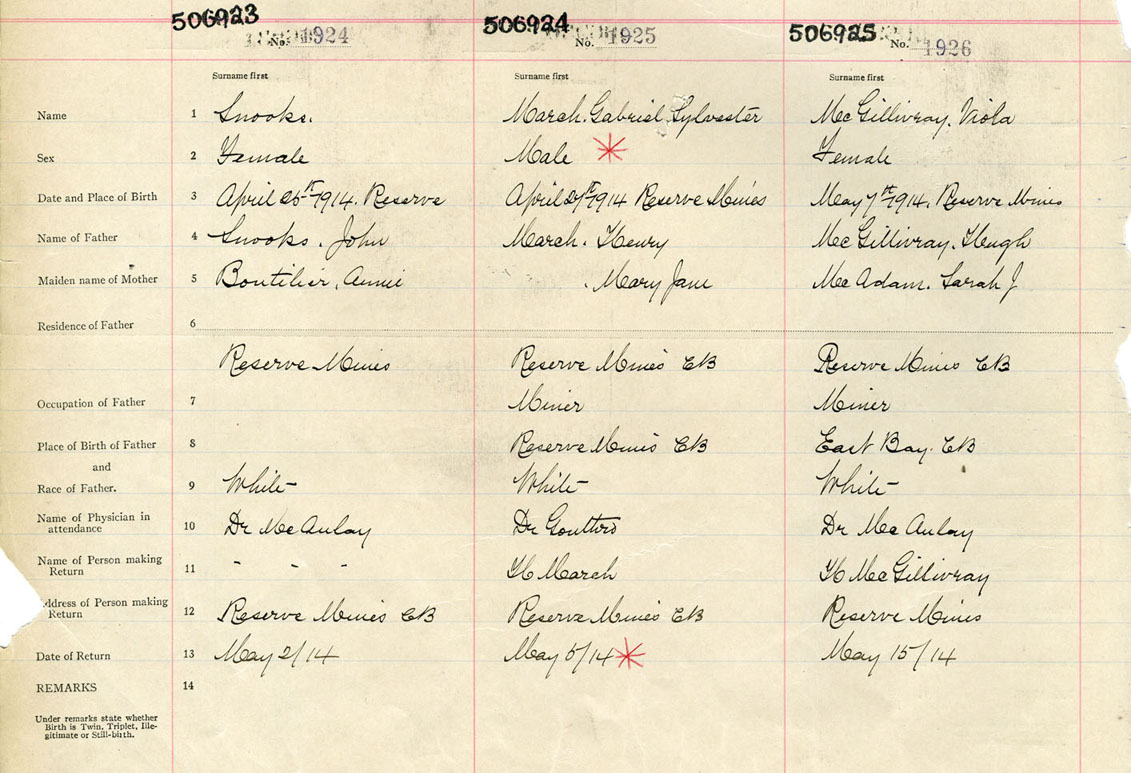 506923 506924 506925
No. 1924 No. 1925 No. 1926
Surname first Surname first Surname first
Name 1 Snooks. March. Gabriel Sylvester McGillivray. Viola
Sex 2 Female Male Female
Date and Place of Birth 3 April 1914. Reserve April 1914 Reserve Mines May 7th 1914. Reserve Mines
Name of Father 4 Snooks. John March. Henry McGillivray. Heugh
Maiden name of Mother 5 Boutilier, Annie . Mary Jane McAdam. Sarah J
Residence of Father 6
Reserve Mines Reserve Mines CB Reserve Mines CB
Occupation of Father 7 Miner Miner
Place of Birth of Father 8 Reserve Mines CB East Bay. CB
and
Race of Father. 9 White White White
Name of Physician in
attendance 10 Dr McAulay Dr Gouthro Dr McAulay
Name of Person making
Return 11 " " " H March H McGillivray
ddress of Person making
Return 12 Reserve Mines CB Reserve Mines CB Reserve Mines
Date of Return 13 May 2/14 May 5/14 May 15/14
REMARKS 14
Under remarks state whether
Birth is Twin, Triplet, Ille-
gitimate or Still-birth.